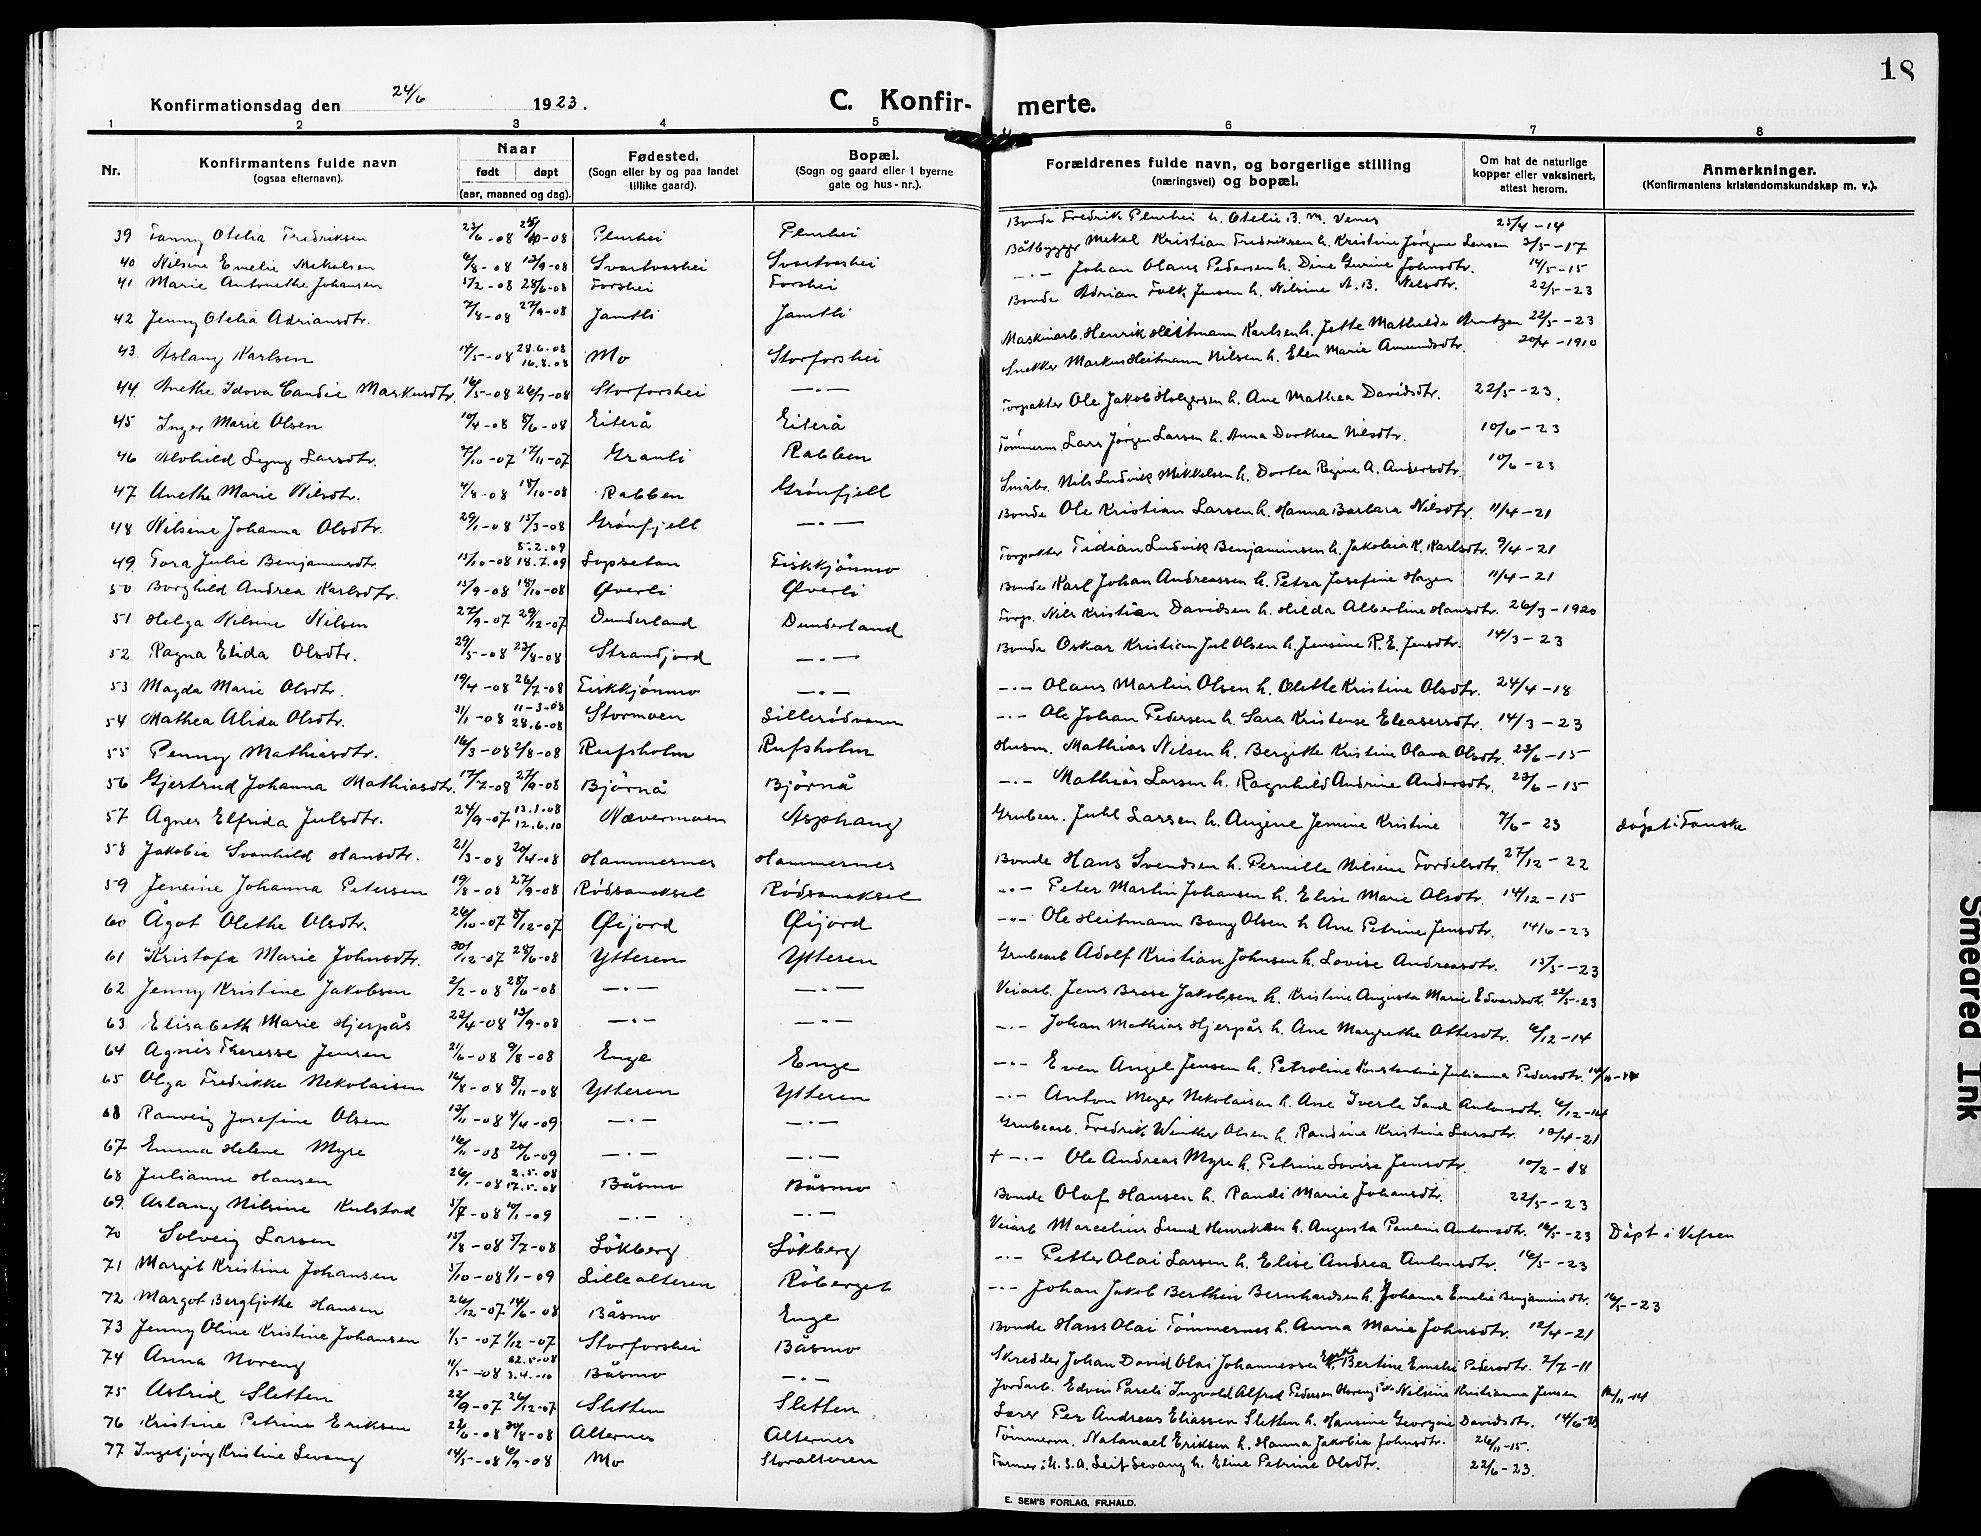 18
Konfirmationsdag den 24/6 1923.
C. Konfir- merte.
1 2 3 4 5 6 7 8
Nr.
Konfirmantens fulde navn
(ogsaa efternavn).
Naar
født døpt
(aar, maaned og dag).
Fødested.
(Sogn eller by og paa landet
tillike gaard).
Bopæl.
(Sogn og gaard eller i byerne
gate og hus-nr.).
Forældrenes fulde navn, og borgerlige stilling
(næringsvei) og bopæl.
Om hat de naturlige
kopper eller vaksinert,
attest herom.
Anmerkninger.
(Konfirmantens kristendomskundskap m. v.).
39 Fanny Otelia Fredriksen 23/6-08 -08 Plurhei Plurhei Bonde Fredrik Plurhei h. Otelie B. M. Venes 25/4-14
40 Nilsine Emelie Mekalsen 6/8-08 13/9-08 Svartvashei Svartvashei Båtbygger Mekal Kristian Fredriksen h. Kristine Jørgine Larsen 3/5-17
41 Marie Antonethe Johansen 5/2-08 28/6-08 Forshei Forshei -.- Johan Olaus Pedersen h. Dine Gurine Johnsdtr. 14/5-15
42 Jenny Otelia Adriansdtr. 7/8-08 27/9-08 Jamtli Jamtli Bonde Adrian Falk Jensen h. Nilsine A. B. Nilsdtr. 22/5-23
43 Aslaug Karlsen 14/5-08 28.6.08 16.8.08 Mo Storforshei Maskinarb. Henrik Heitmann Karlsen h. Jette Mathilde Arntzen 22/5-23
44. Anethe Idova Candie Markusdtr. 16/5-08 26/7-08 Storforshei -.- Snekker Markus Heitmann Nilsen h. Elen Marie Amundsdtr. 20/4-1910
45 Inger Marie Olsen 10/4-08 8/6-08 Eiterå Eiterå Forpakter Ole Jakob Holgersen h. Ane Mathea Davidsdtr. 22/5-23.
46 Alvhild Lyng Larsdtr. 7/10-07 17/11-07 Granli Rabben Tømmerm. Lars Jørgen Larsen h. Anna Dorthea Nilsdtr. 10/6-23
47 Anethe Marie Nilsdtr. 4/8-08 18/10-08 Rabben Grønfjell Småbr. Nils Ludvik Mikkelsen h. Dortea Regine A. Andersdtr. 10/6-23
48 Nilsine Johanna Olsdtr. 29/1-08 15/3-08 Grønfjell -.- Bonde Ole Kristian Larsen h. Hanna Barbara Nilsdtr. 11/4-21
49. Tora Julie Benjaminsdtr. 15/10-08 5.2.09 18.7.09 Fiskkjønmo Forpakter Tidian Ludvik Benjaminsen h. Jakobia K. Karlsdtr. 9/4-21
50 Borghild Andrea Karlsdtr. 13/9-08 18/10-08 Øverli Øverli Bonde Karl Johan Andreassen h. Petra Josefine Hagen 11/4-21
51 Helga Nilsine Nilsen 27/9-07 29/12-07 Dunderland Dunderland Forp. Nils Kristian Davidsen h. Hilda Albertine Hansdtr. 26/3-1920
52 Ragna Elida Olsdtr. 29/5-08 23/8-08 Strandjord -.- Bonde Oskar Kristian Jul Olsen h. Jensine R. E. Jensdtr. 14/3-23
53 Magda Marie Olsdtr. 19/4-08 26/7-08 Fiskkjønmo -.- -.- Olaus Martin Olsen h. Olette Kristine Olsdtr. 24/4-18
54 Mathea Alida Olsdtr. 31/1-08 11-3-08 28.6-08 Stormoen Lillerødvann -.- Ole Johan Pedersen h. Sara Kristense Eleasersdtr. 14/3-23
55 Penny Mathiasdtr. 16/3-08 2/8-08 Rufsholm Rufsholm Husm. Mathias Nilsen h. Bergitte Kristine Olava Olsdtr. 23/6-15
56 Gjertrud Johanna Mathiasdtr. 17/7-08 27/9-08 Bjørnå Bjørnå -.- Mathias Larsen h. Ragnhild Andrine Andersdtr. 23/6-15
57 Agnes Elfrida Julsdtr. 24/9-07 12.6.10 Nævermoen Asphaug Grubear. Juhl Larsen h. Angine Jemine Kristine 7/6-23 døpt i Fauske
58 Jakobie Svanhild Hansdtr. 21/3-08 20/4-08 Hammernes Hammernes Bonde Hans Svendsen h. Pernille Nilsine Tordelsdtr. 27/12-22
59 Jensine Johanna Petersen 19/8-08 27/9-08 Rødsanaksel Rødsanaksel -.- Peter Martin Johansen h. Elise Marie Olsdtr. 14/12-15
60 Ågot Olethe Olsdtr. 26/10-07 8/12-07 Øijord Øijord -.- Ole Heitmann Bang Olsen h. Ane Petrine Jensdtr. 14/6-23
61 Kristofa Marie Johnsdtr. 30/12-07 28/6-08 Ytteren Ytteren Grubearb Adolf Kristian Johnsen h. Lovise Andreasdtr. 15/5-23
62 Jenny Kristine Jakobsen 2/2-08 28/6-08 -.- -.- Veiarb. Jens Brose Jakobsen h. Kristine Augusta Marie Edvardsdtr. 22/5-23
63 Elisabeth Marie Hjerpås 22/4-08 13/9-08 -.- -.- -.- Johan Mathias Hjerpås h. Ane Margrethe Ottesdtr. 6/12-14
64 Agnes Theresse Jensen 21/6-08 9/8-08 Enge Enge -.- Even Angel Jensen h. Petroline Konstantine Julianna Pedersdtr.
65 Olga Fredrikke Nekolaisen 16/8-08 8/11-08 Ytteren Ytteren -.- Anton Meyer Nekolaisen h. Ane Iverle Sand Antonsdtr. 6/12-14
68 Ranveig Josefine Olsen 13/11-08 4/4-09 -.- -.- Grubearb. Fredrik Winther Olsen h. Randine Kristine Larsdtr. 13/4-21
67 Emma Helene Myre 16/11-08 20/6-09 -.- -.- + -.- Ole Andreas Myre h. Petrine Lovise Jensdtr. 10/2-18
68 Julianne Hansen 26/1-08 2.5.08 17.5.08 Båsmo Båsmo Bonde Olaf Hansen h. Randi Marie Johansdtr. 22/5-23
69. Aslaug Nilsine Kulstad 5/7-08 10/1-09 -.- -.- Veiarb Marcelius Lund Henriksen h. Augusta Pauline Antonsdtr. 16/5-23 Døpt i Vefsen
70 Solveig Larsen 15/8-08 5/7-08 Løkberg Løkberg -.- Petter Olai Larsen h. Elise Andrea Antonsdtr. 16/5-23
71 Margit Kristine Johansen 5/10-08 1/1-09 Lillealteren Røberget -.- Johan Jakob Berthin Bernhardsen h. Johanna Emelie Benjaminsdtr. 16/5-23
72 Margot Bergljothe Hansen 26/12-07 14/6-08 Båsmo Enge Bonde Hans Olai Tømmernes h. Anna Marie Johnsdtr. 12/4-21
73 Jenny Oline Kristine Johansen 1/5-07 1/12-07 Storforshei Båsmo Skredder Johan David Olai Johannessen h. Bertine Emelie Pedersdtr. 2/7-11
74 Anna Noreng 11/5-08 22.5-08 3.4.-10 Båsmo -.- Jordarb. Edvin Pareli Ingvald Alfred Pedersen Noreng Nilsine Kristianna Jensen 12/11-14
75 Astrid Sletten 22/9-07 26/12-07 Sletten Sletten Lærer Per Andreas Eliassen Sletten h. Hansine Georgine Davidsdtr. 14/6-23
76 Kristine Petrine Eriksen 28/6-08 30/8-08 Alternes Alternes Tømmerm. Natanael Eriksen h. Hanna Jakobia Johnsdtr. 26/11-15.
77 Ingebjørg Kristine Sevang 14/5-08 6/9-08 Mo Storalteren Farmer i U.S.A. Leif Sevang h. Eline Petrine Olsdtr. 22/6-23.
E. SEM'S FORLAG, FR.HALD.
Smeared Ink